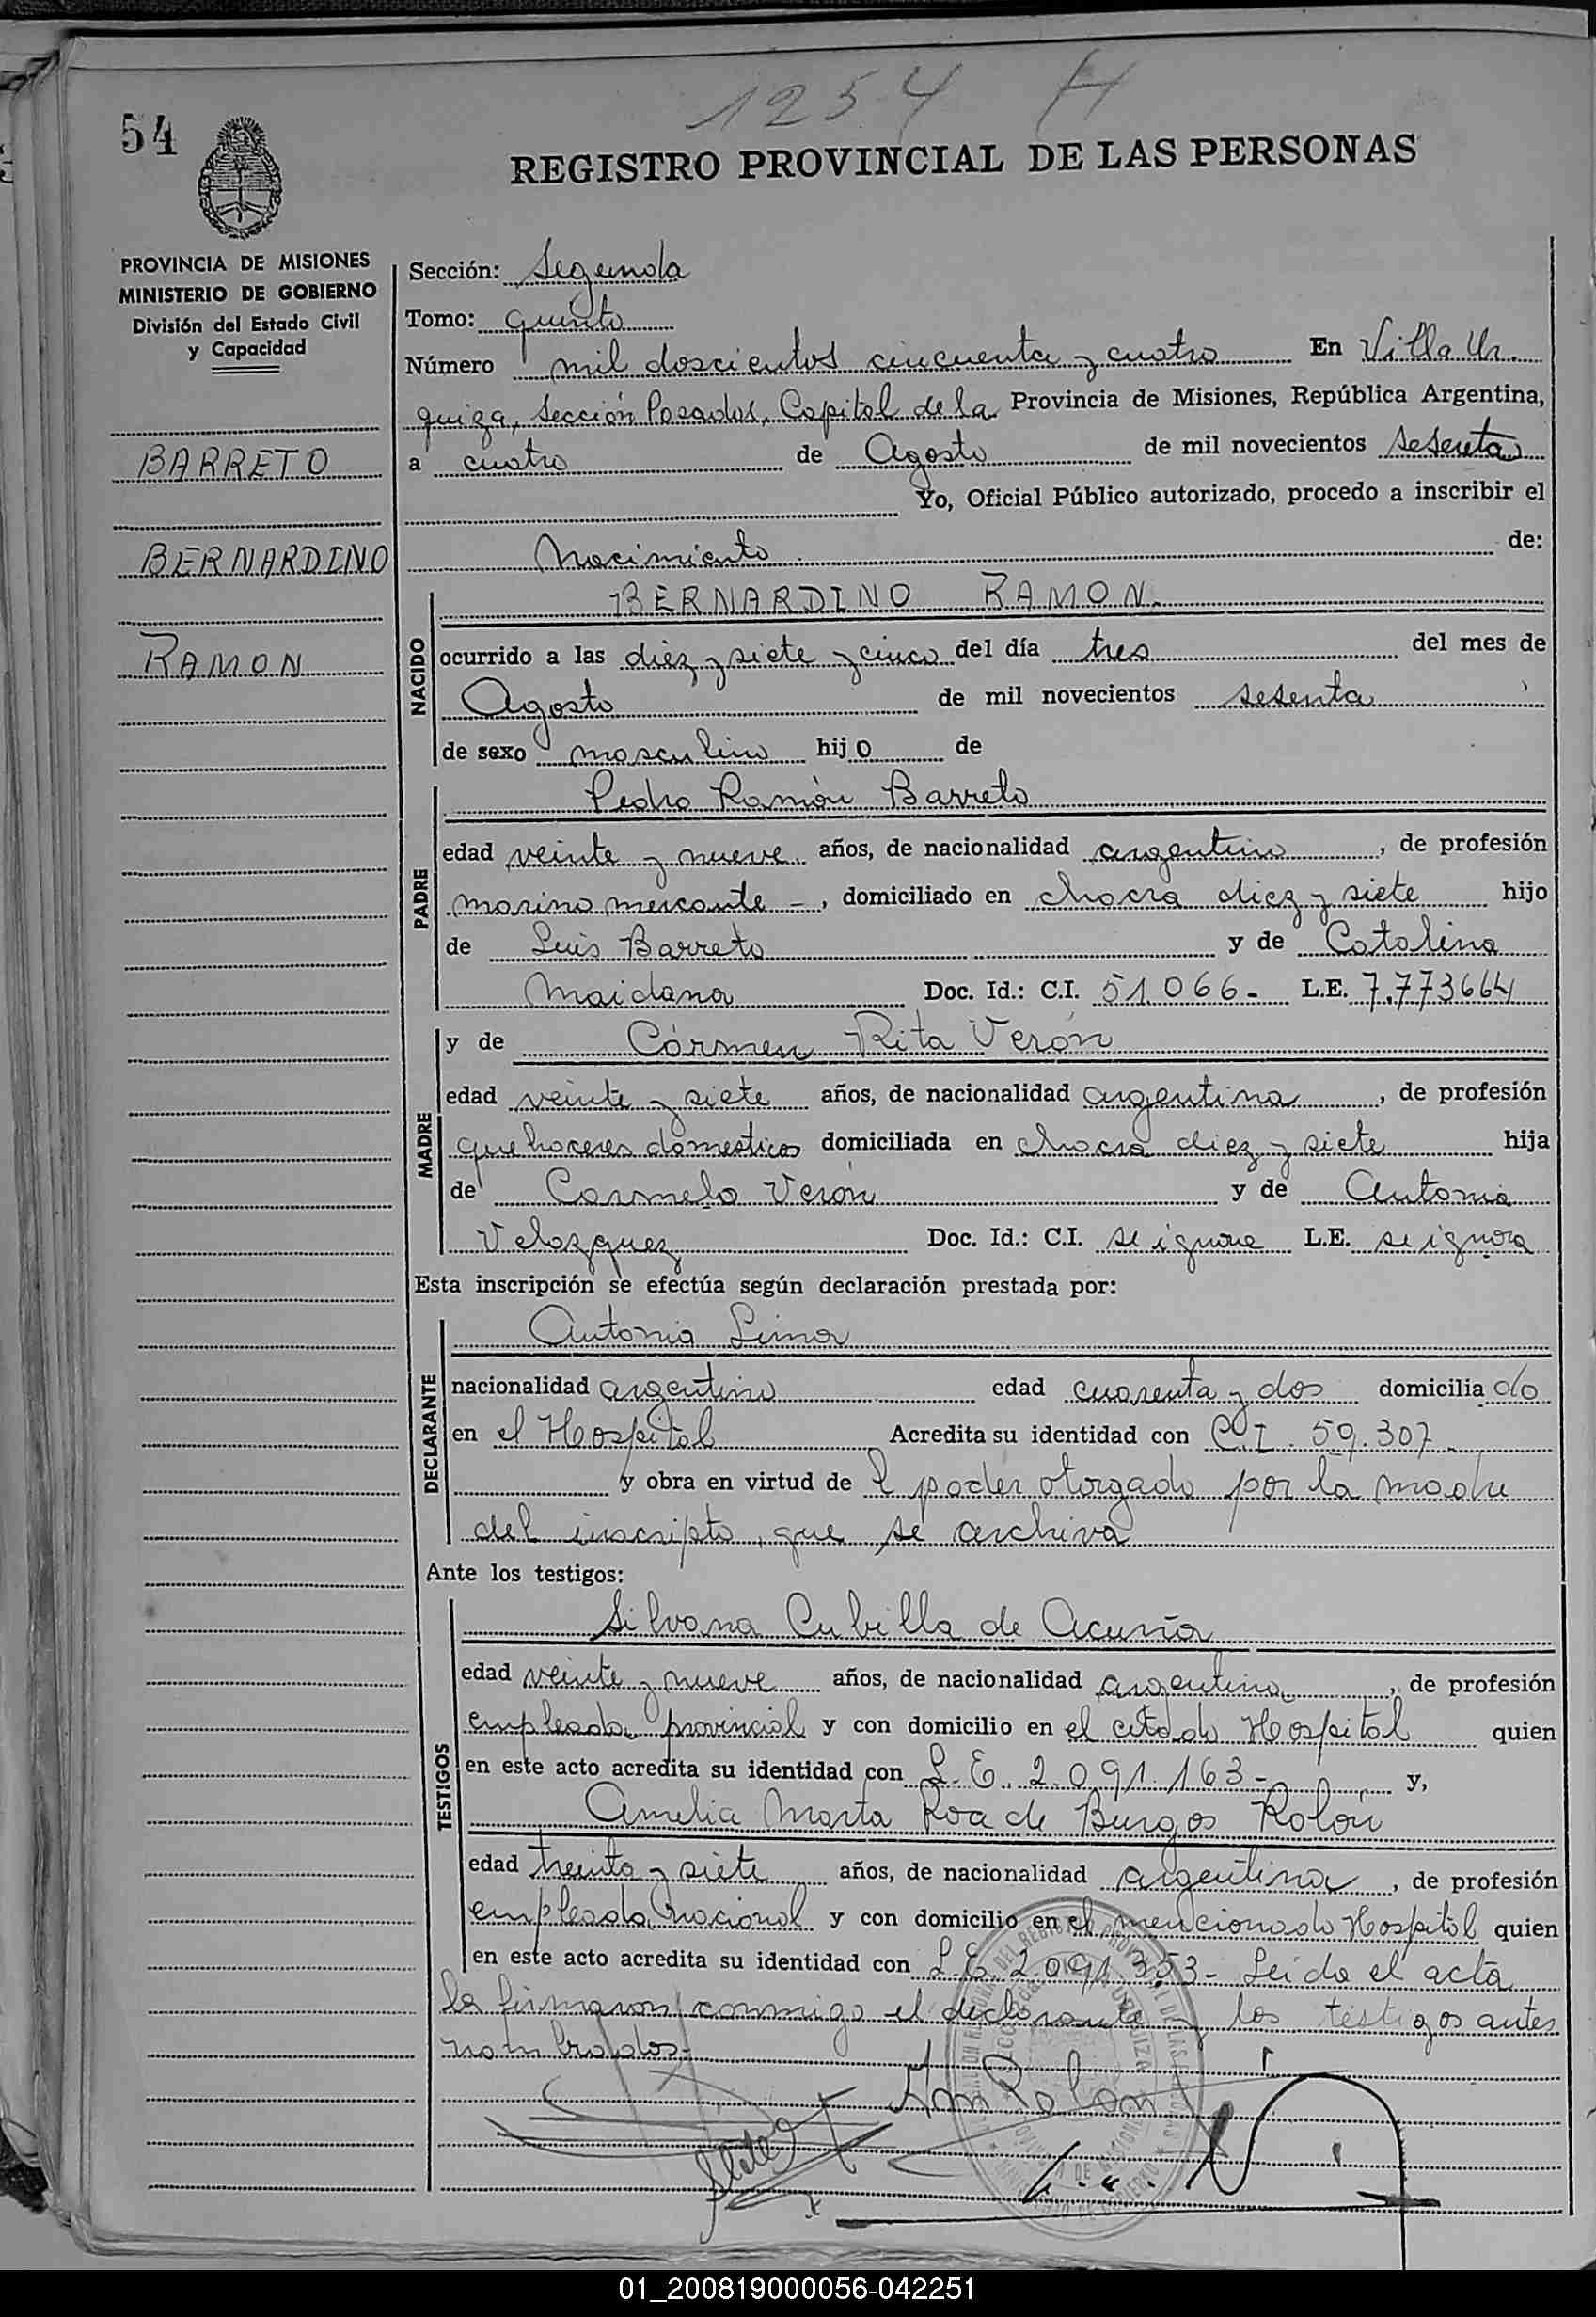 1254 H
54
REGISTRO PROVINCIAL DE LAS PERSONAS
PROVINCIA DE MISIONES
MINISTERIO DE GOBIERNO
División del Estado Civil
y Capacidad
BARRETO
BERNARDINO
RAMON
Sección: Segunda
Tomo: quinto
Número mil doscientos cincuenta y cuatro En Villa Ur.
quiza, Sección Posadas, Capital de la Provincia de Misiones, República Argentina,
a cuatro de Agosto de mil novecientos sesenta
Yo, Oficial Público autorizado, procedo a inscribir el
Nacimiento de:
NACIDO
BERNARDINO RAMON.
ocurrido a las diez y siete y cinco del día tres del mes de
Agosto de mil novecientos sesenta
de sexo masculino hijo de
PADRE
Pedro Ramón Barreto
edad veinte y nueve años, de nacionalidad argentino, de profesión
marino mercante -, domiciliado en chacra diez y siete hijo
de Luis Barreto y de Catalina
Maidana Doc. Id.: C.I. 51.066- L.E. 7.773664
MADRE
y de Cármen Rita Verón
edad veinte y siete años, de nacionalidad argentina, de profesión
quehaceres domesticos domiciliada en chacra diez y siete hija
de Carmelo Verón y de Antonia
Velazquez Doc. Id.: C.I. se ignora L.E. se ignora
Esta inscripción se efectúa según declaración prestada por:
DECLARANTE
Antonio Lima
nacionalidad argentino edad cuarenta y dos domiciliado
en el Hospital Acredita su identidad con C.I. 59.307
y obra en virtud de l poder otorgado por la madre
del inscripto, que se archiva
Ante los testigos:
TESTIGOS
Silvana Cubilla de Acuña
edad veinte y nueve años, de nacionalidad argentina, de profesión
empleada provincial y con domicilio en el citado Hospital quien
en este acto acredita su identidad con L.E. 2.091.163- y,
Amelia Marta Roa de Burgos Rolón
edad treinta y siete años, de nacionalidad argentina, de profesión
empleada nacional y con domicilio en el mencionado Hospital quien
en este acto acredita su identidad con L.E. 2.091.353- Leida el acta
la firmaron conmigo el declarante y los testigos antes
nombrados.-
Am Rolon
01_200819000056-042251